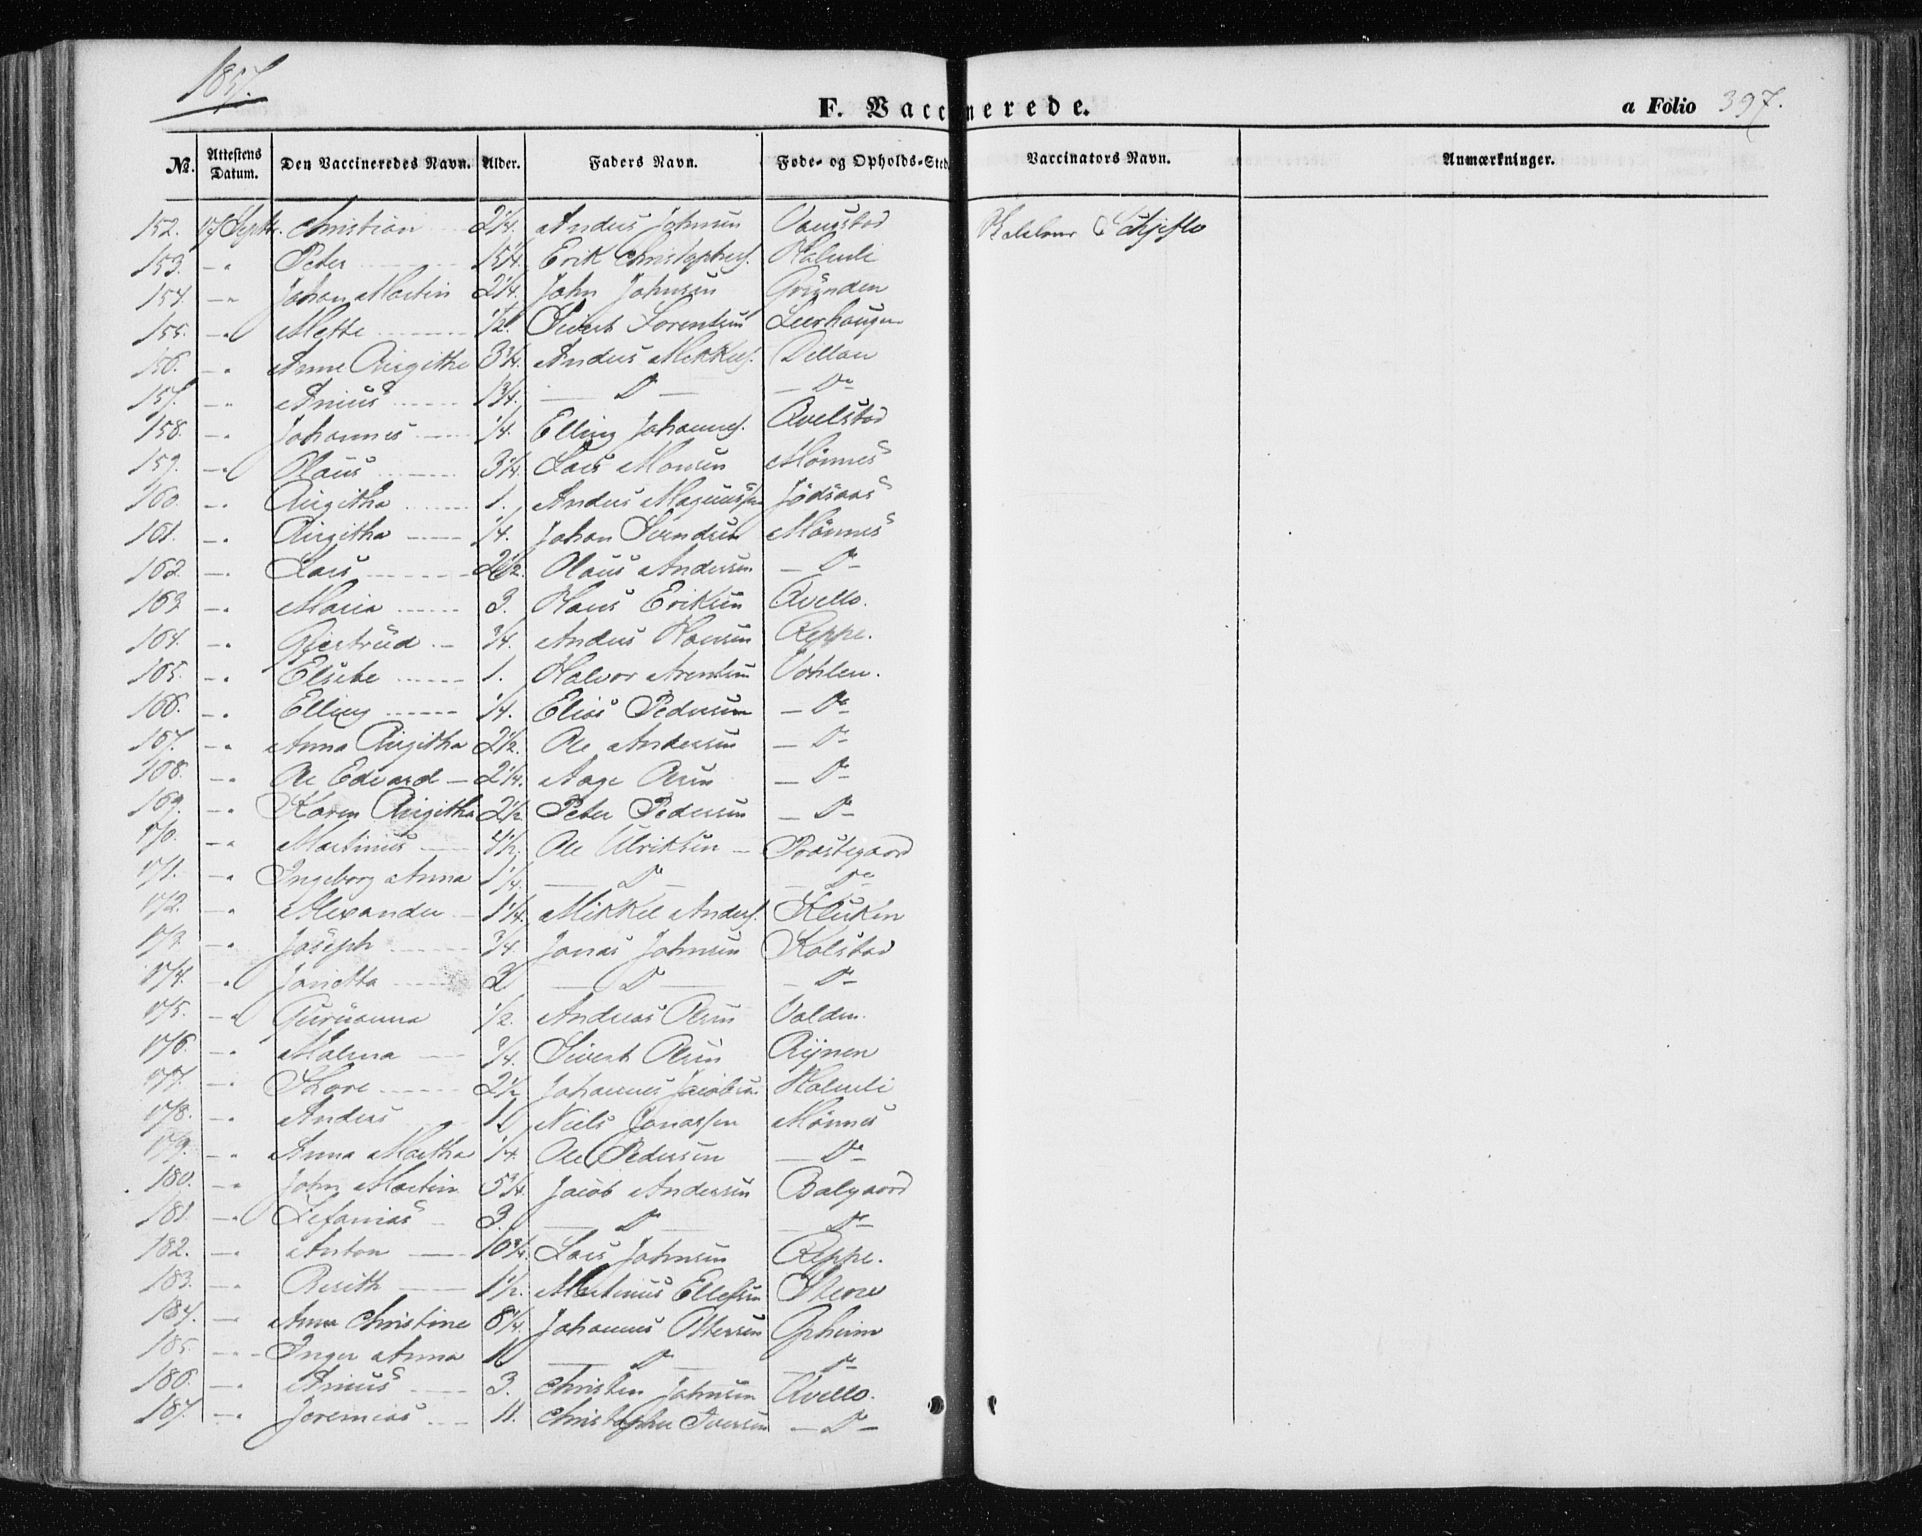 1857.
F. Vaccinerede.
a Folio 397.
No. Attestens Datum. Den Vaccineredes Navn. Alder. Faders Navn. Føde- og Opholds-Sted Vaccinators Navn. Anmærkninger.
152. 17 Septbr. Christian 2 1/4. Anders Johnsen Vangstad
153. -" Peter 1 5/4. Erik Christophers. Halmli
154. -" Johan Martin 2 1/4. John Johnsen Gründen
155. -" Mette 1/2. Sivert Lorentsen Leerhaugen
156. -" Anne Birgitha 3 3/4. Anders Mikkels. Dellan
157. -" Arnius 1 3/4. — Do — — Do —
158. -" Johannes 1/4. Elling Johannes. Qvelstad
159. -" Olaus 3 1/4. Lars Monsen Mönnes
160. -" Birgitha 1. Anders Magnussen Jödsaas
161. -" Birgitha 1/4. Johan Svendsen Mönnes
162. -" Lars 2 1/2. Olaus Andersen — Do —
163. -" Maria 3. Hans Eriksen Qvello.
164. -" Gjertrud 3/4. Anders Hansen Reppe.
165. -" Elsebe 1. Halvor Arentsen Vohlen.
166. -" Elling 1/4. Elias Pedersen — Do —
167. -" Anna Birgitha 2 1/2. Ole Andersen — Do —
168. -" Ole Edvard 2 1/4. Aage Olsen — Do —
169. -" Karen Birgitha 2 1/2 Peter Pedersen — Do —
170. -" Martinus 4 1/2. Ole Ulriksen Præstegaard
171. -" Ingeborg Anna 1 1/4. — Do — — Do —
172. -" Alexander 1 1/4. Mikkel Anders. Kluken
173. -" Joseph 3/4. Jonas Johnsen Kolstad
174. -" Janetta 3 — Do — — Do —
175. -" Guruanna 1/2. Andreas Olsen Valden
176. -" Malena 3/4. Sivert Olsen Rynen
177. -" Thore 2 1/2 Johannes Jacobsen Halmli
178. -" Anders 1 Niels Jonassen Mönnes
179. -" Anna Martha 1/4. Ole Pedersen — Do —
180. -" John Martin 5 3/4. Jacob Andersen Balgaard
181. -" Zefanias 3. — Do — — Do —
182. -" Anton 10 3/4. Lars Johnsen Reppe.
183. -" Berith 1 1/2. Martinus Ellefsen
184. -" Anna Christine 8 1/4. Johannes Ottersen Opheim
185. -" Inger Anna 11 — Do — — Do —
186. -" Arnius 3. Christen Johnsen Qvello.
187. -" Jeremias 11. Christopher Iversen — Do —